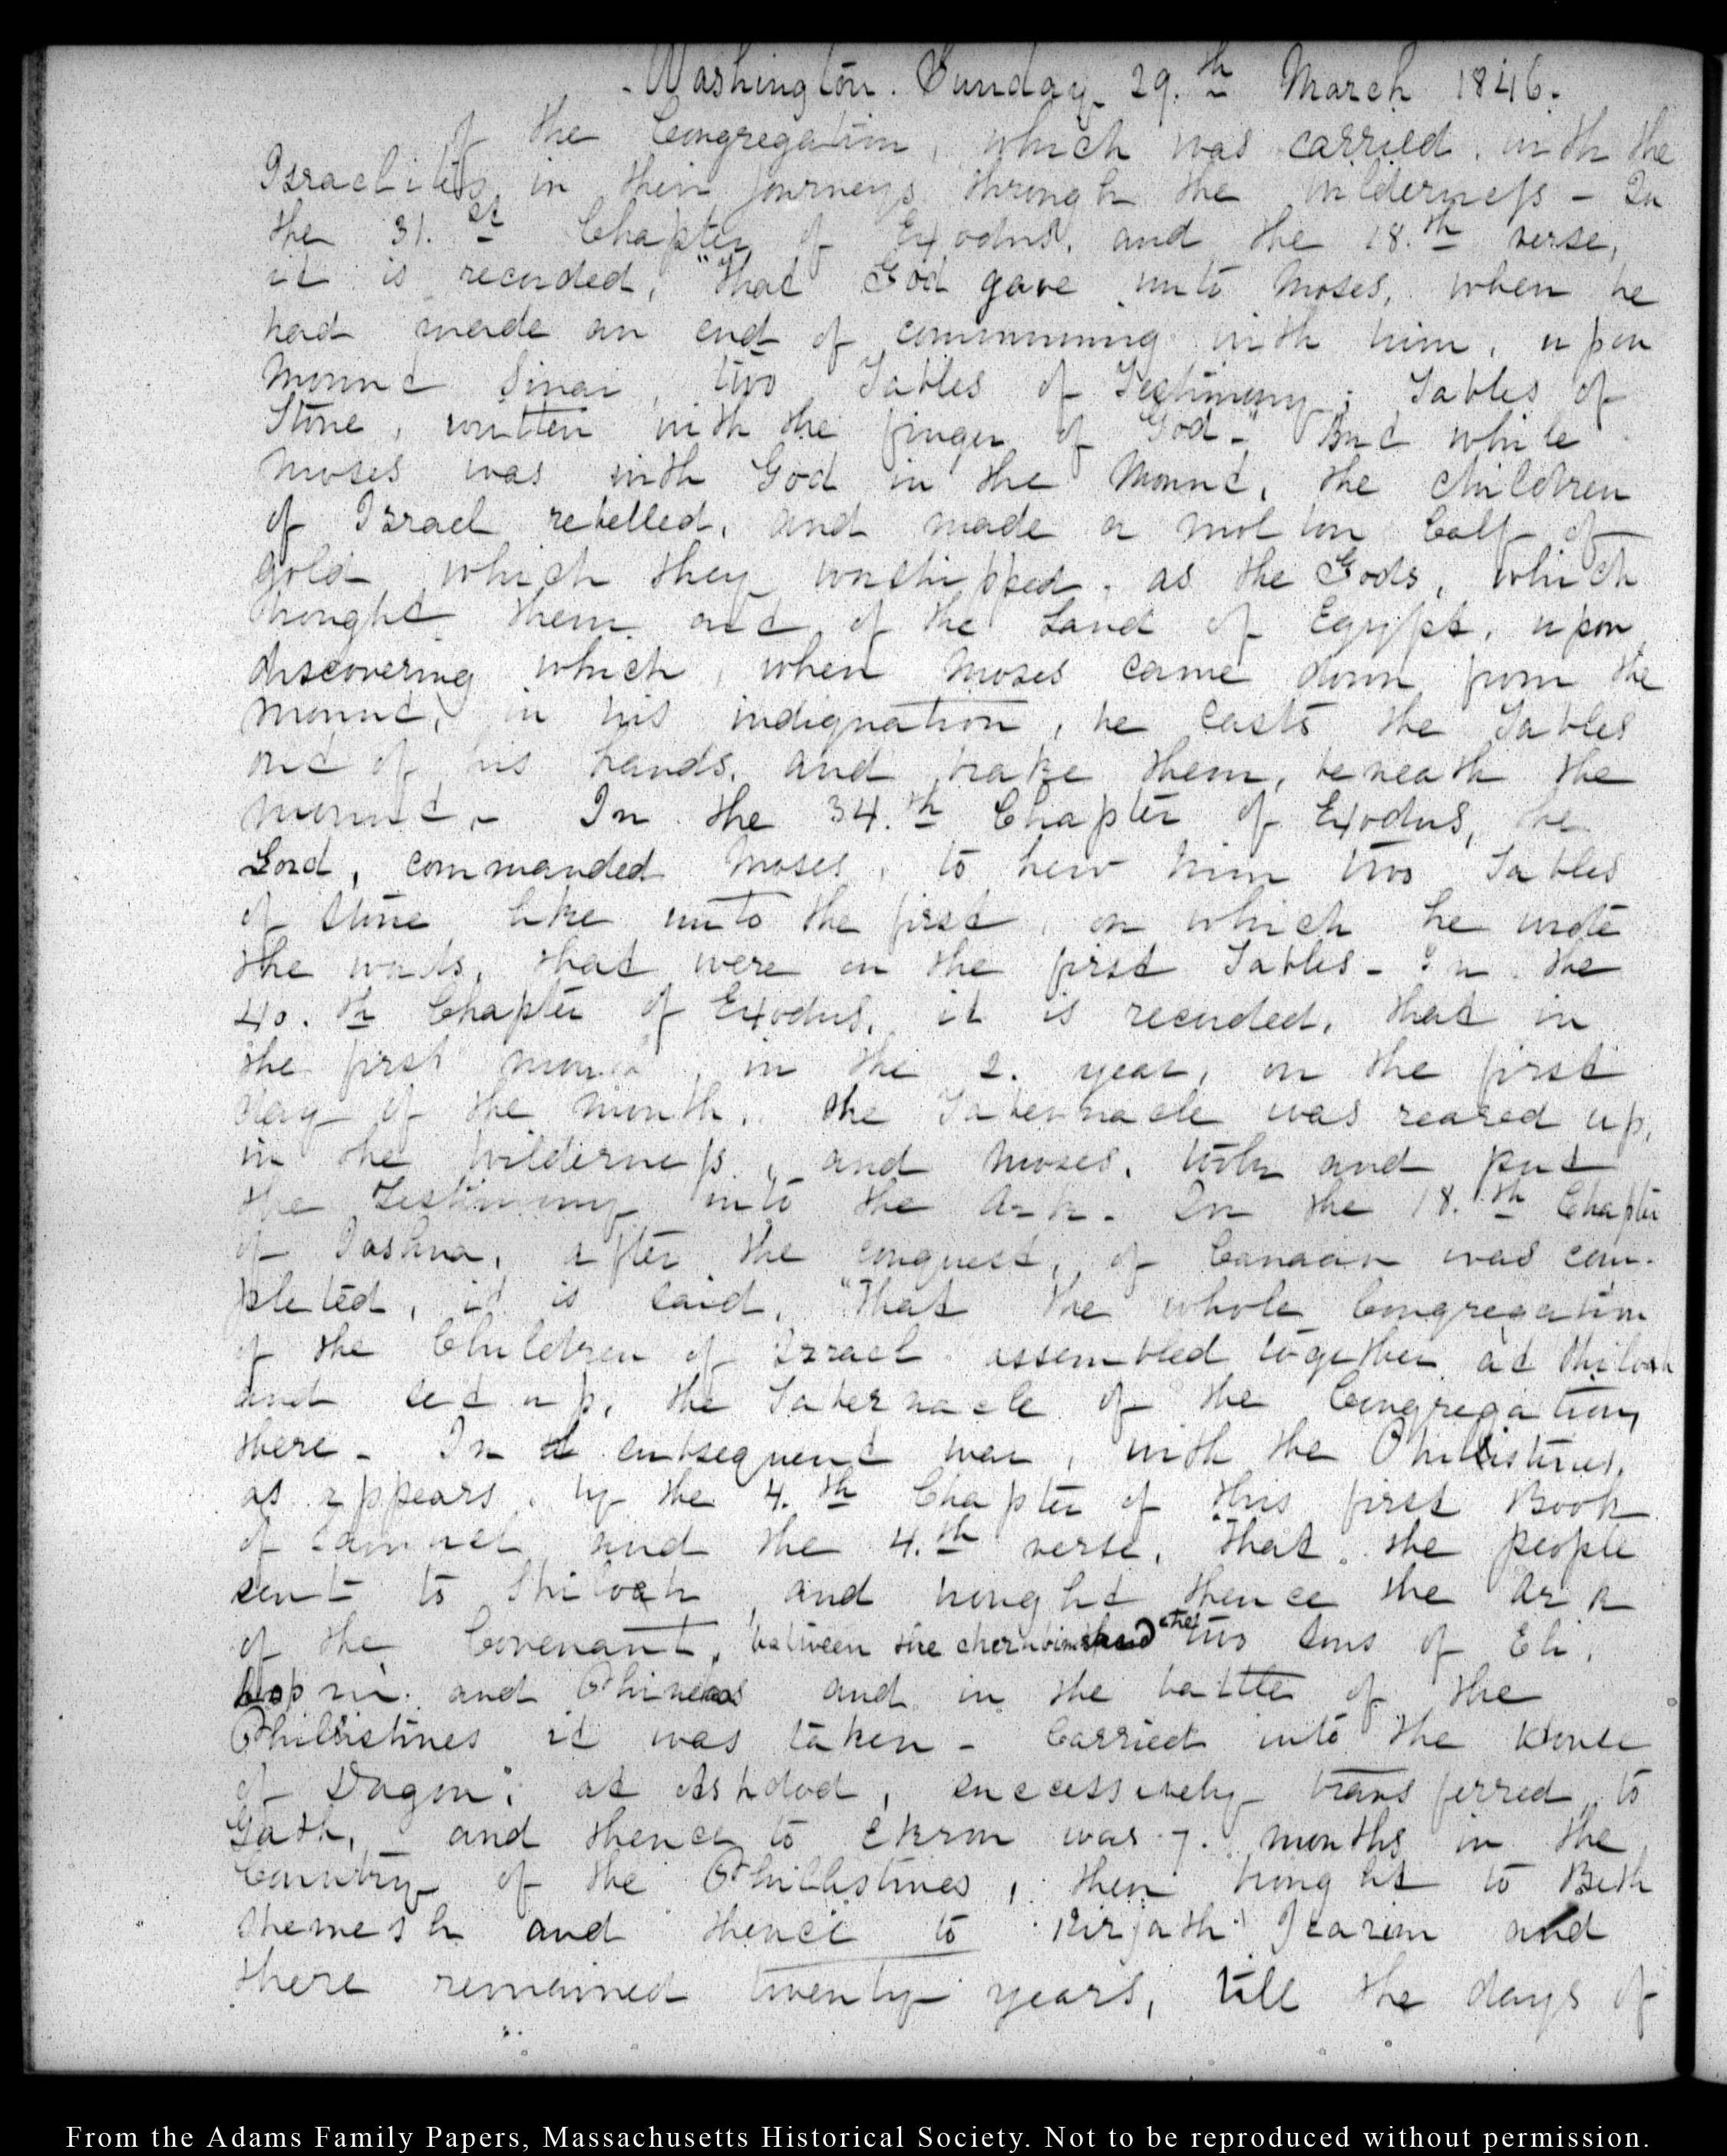 Washington. Sunday 29.th March 1846.
of the Congregation, which was carried, with the
Israelites, in their journeys through the wilderness - In
the 31.st Chapter of Exodus, and the 18.th verse,
it is recorded, "that God gave unto Moses, when he
had made an end of communing with him, upon
Mount Sinai, two Tables of Testimony; Tables of
Stone, written with the finger of God." But while
Moses was with God in the Mount, the children
of Israel rebelled, and made a molton Calf of
gold which they worshipped, as the Gods, which
brought them out of the Land of Egypt, upon
discovering which, when Moses came down from the
mount, in his indignation, he casts the Tables
out of his hands, and brake them, beneath the
mount. - In the 34.th Chapter of Exodus, the
Lord, commanded Moses, to hew him two Tables
of Stone like unto the first, on which he wrote
the words, that were on the first Tables - In the
40.th Chapter of Exodus, it is recorded, that in
the first month, in the 2. year, on the first
day of the month, the Tabernacle was reared up,
in the wilderness, and Moses, took and put
the Testimony into the Ark. In the 18.th Chapter
of Joshua, after the conquest, of Canaan was com-
pleted, it is said, "That the whole Congregation
of the Children of Israel assembled together at Shiloah
and set up, the Tabernacle of the Congregation,
there - In a subsequent war, with the Philistines,
as appears, by the 4.th Chapter of this first Book
of Samuel and the 4.th verse, "that the people
sent to Shiloah, and brought thence the Ark
of the Covenant, between the cherubims and the two Sons of Eli,
Hopni and Phineas and in the battle of the
Philistines it was taken - Carried into the House
of Dagon; at Ashdod, successively transferred to
Gath, and thence to Ekron was 7. months in the
Country of the Philistines, then brought to Beth
shemesh and thence to Kirjath Jearim and
there remained twenty years, till the days of
From the Adams Family Papers, Massachusetts Historical Society. Not to be reproduced without permission.